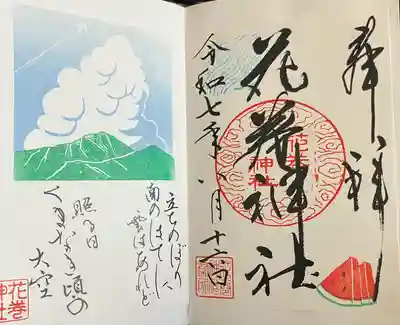 奉拝
花巻神社
花巻
神社
令和七年八月十日
立ちのぼり
南のはてに
雲はあれど
照る日
くまなき頃の
大空
花巻
神社